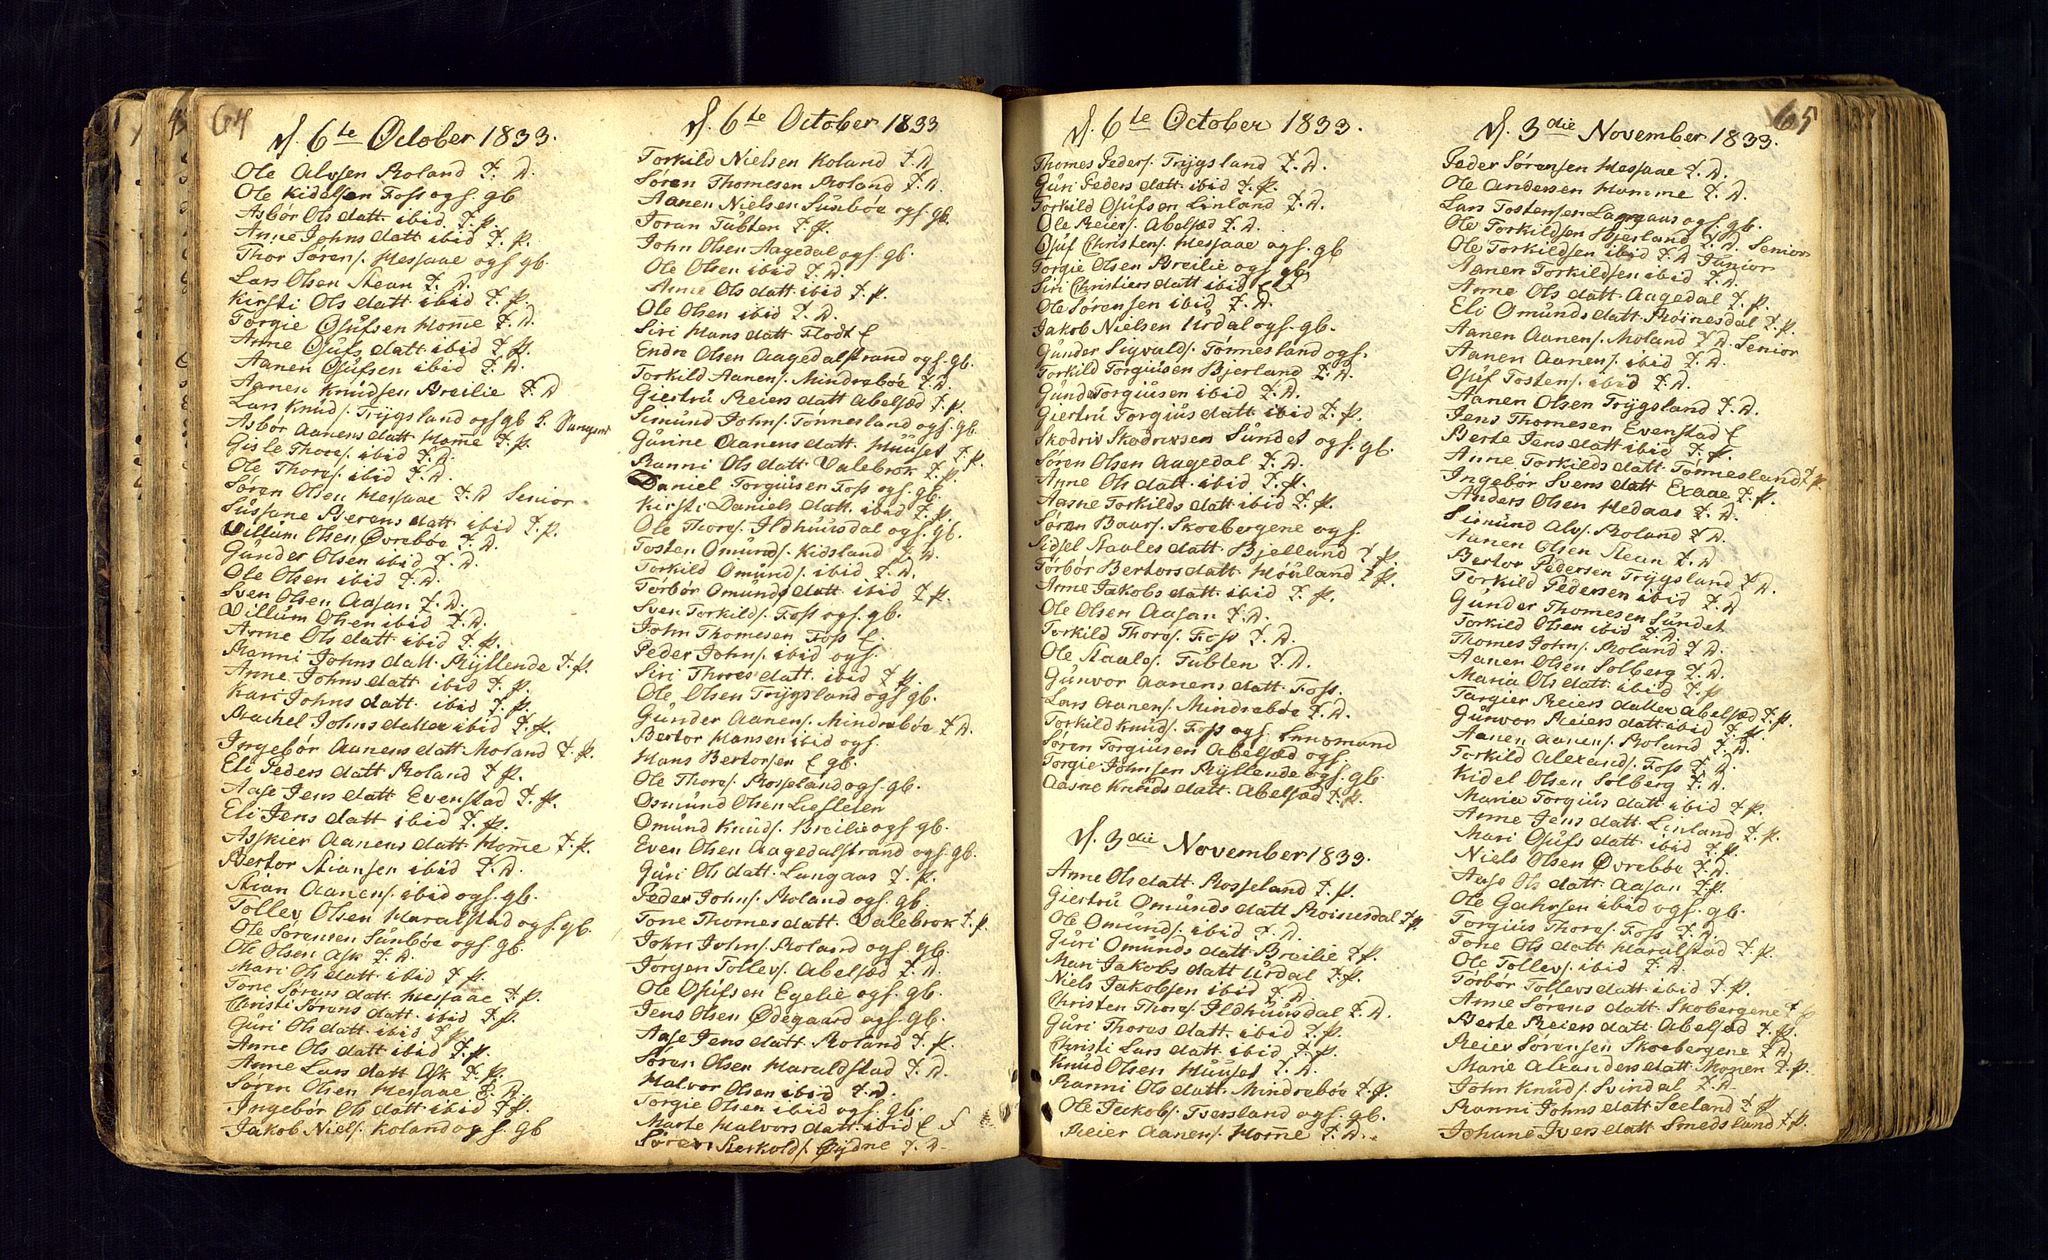 64
d. 6te October 1833.
Ole Alvsen Roland T. D.
Ole Kidelsen Foss ogs. gb
Asbör Ols datt ibid T. P.
Anne Johns datt ibid T. P.
Thor Sörens. Messaae ogs. gb.
Lars Olsen Stean T. D.
Kirsti Ols datt ibid T. P.
Torgie Osüfsen Home T. D.
Anne Osüfs datt ibid T. P.
Aanen Osüfsen ibid T. D.
Aanen Knüdsen Breilie T. D
Lars Knüds. Trygsland ogs. gb
Asbör Aanens datt Home T. P.
Gisle Thores. ibid T. D.
Ole Thores. ibid T. D.
Sören Olsen Messaae T. D Senior
Süssane Berens datt ibid T. P.
Villüm Olsen Øvrebøe T. D.
Günder Olsen ibid T. D.
Ole Olsen ibid T. D.
Sven Olsen Aasan T. D.
Villüm Olsen ibid T. D.
Anne Ols datt ibid T. P.
Ranni Johns datt. Ryllende T. P.
Anne Johns datt ibid T. P.
Kari Johns datt. ibid T. P.
Rachel Johns datter ibid T. P.
Ingebör Aanens datt Moland T. P.
Eli Peders datt Roland T. P.
Aase Jens datt Evenstad T. P.
Eli Jens datt ibid T. P.
Asskier Aanens datt Home T. P.
Bertor Stiansen ibid T. D.
Stian Aanens. ibid ogs. gb.
Tollev Olsen Haralstad ogs. gb.
Ole Sörensen Sünbøe ogs. gb.
Ole Olsen Ask T. D.
Mari Ols datt ibid T. P.
Tone Sörens datt Messaae T. P.
Christi Sörens datt. ibid T. P.
Güri Ols datt ibid T. P.
Anne Ols datt ibid T. P.
Anne Lars datt Ask T. P.
Sören Olsen Messaae T. D.
Ingebör Ols datt ibid T. P.
Jakob Niels. Roland ogs. gb
d. 6te October 1833
Torkild Nielsen Roland T. D.
Sören Thomesen Roland T. D.
Aanen Nielsen Sünbøe ogs. gb.
Joran Tübten T. P.
John Olsen Aagedal ogs. gb.
Ole Olsen ibid T. D.
Anne Ols datt ibid T. P.
Ole Olsen ibid T. D.
Siri Hans datt Flodt E
Endre Olsen Aagedalstrand ogs. gb.
Torkild Aanens. Mindrebøe T. D.
Giertrü Reiers datt Abelsæd T. P.
Simünd Johns. Tønnesland ogs. gb.
Günne Aanens datt. Hüüset T. P.
Ranni Ols datt. Valebrok T. P.
Daniel Torgiüsen Foss ogs. gb.
Kirsti Daniels datt. ibid T. P.
Ole Thores. Ildhüüsdal ogs. gb.
Tosten Omünds. Kidsland T. D.
Torkild Omünds. ibid T. D.
Törbör Omünds datt ibid T. P.
Sven Torkilds. Foss ogs. gb.
John Thomesen Foss E.
Peder Johns. ibid ogs.
Siri Thores datt. ibid T. P.
Ole Olsen Trygsland ogs. gb.
Günder Aanens. Mindrebøe T. D.
Bertor Hansen ibid ogs.
Hans Bertorsen E gb.
Ole Thores. Rosseland ogs. gb.
Osmünd Olsen Liesleien
Omünd Knüds. Breilie ogs. gb.
Even Olsen Aagedalstrand ogs. gb.
Güri Ols datt. Langaas T. P.
Peder Johns. Roland ogs. gb.
Tone Thomes datt. Valebrok T. P.
John Johns. Roland ogs. gb.
Jörgen Tollevs. Abelsæd T. D.
Ole Osüfsen Egelie ogs. gb.
Jens Olsen Ødegaard ogs. gb.
Aase Jens datt Roland T. P.
Sören Olsen Haraldstad T. D.
Halvor Olsen ibid T. D.
Torgie Olsen ibid ogs. gb.
Marte Halvors datt ibid E
Sören Sterkolds. Øydne T. D.
65
d. 6te October 1833.
Thomes Peders. Trygsland T. D.
Güri Peders datt ibid T. P.
Torkild Osüfsen Linland T. D.
Ole Reiers. Abelsæd T. D.
Osüf Christens. Messaae ogs. gb
Torgie Olsen Breilie ogs. gb
Siri Christiers datt ibid
Ole Sörensen ibid T. D.
Jakob Nielsen Urdal ogs. gb.
Günder Sigvalds. Tønnesland ogs.
Torkild Torgiüsen Bjerland T. D.
Günder Torgiüsen ibid T. D.
Giertrü Torgiüs datt ibid T. P.
Skodriv Skodrivsen Sündet ogs. gb.
Sören Olsen Aagedal T. D.
Anne Ols datt. ibid T. P.
Aasne Torkilds datt ibid T. P.
Sören Baars. Skoebergene ogs.
Sidsel Staales datt Bjelland T. P.
Törbör Bertors datt Höüland T. P.
Anne Jakobs datt ibid T. P.
Ole Olsen Aasan T. D.
Torkild Thores. Foss T. D.
Ole Staales. Tübten T. D.
Günvor Aanens datt Foss.
Lars Aanens. Mindrebøe T. D.
Torkild Knüds. Foss ogs.
Sören Torgiüsen Abelsæd ogs.
Torgie Johnsen Ryllende ogs. gb.
Aasne Knüds datt. Abelsæd T. P.
d. 3die November 1833.
Anne Ols datt Rosseland T. P.
Giertrü Omünds datt Roinesdal T. P.
Ole Omünds. ibid T. D.
Güri Omünds datt Breilie T. P.
Mari Jakobs datt Urdal T. P.
Niels Jakobsen ibid T. D
Christen Thores. Ildhüüsdal T. D.
Güri Thores datt. ibid T. P.
Christi Lars datt. ibid T. P.
Knüd Olsen Hüüset T. D.
Ranni Ols datt. Mindrebøe T. P.
Ole Jackobs. Tversland ogs. gb.
Reier Aanens. Home T. D.
d. 3die November 1833.
Peder Sörensen Messaae T. D.
Ole Andersen Homme T. D.
Lars Tostensen Langaas ogs. gb.
Ole Torkildsen Bjerland T. D. Senior
Ole Torkildsen ibid T. D Junior
Aanen Torkildsen ibid T. D.
Anne Ols datt Aagedal T. P.
Eli Omünds datt Roinesdal T. P.
Aanen Aanens. Moland T. D. Senior
Aanen Aanens. ibid T. D.
Osüf Tostens. ibid T. D.
Aanen Olsen Trygsland T. D.
Jens Thomesen Evenstad E
Berte Jens datt ibid T. P.
Anne Torkilds datt Tønnesland T. P.
Ingebör Svens datt Exaae T. P.
Anders Olsen Hedaas T. D.
Simünd Alvs. Roland T. D.
Aanen Olsen Stean T. D.
Bertor Pedersen Trygsland T. D.
Torkild Pedersen ibid T. D.
Günder Thomesen Sündet
Torkild Olsen ibid T. D.
Thomes Johns. Roland T. D.
Aanen Olsen Solberg T. D.
Maria Ols datt ibid T. P.
Targier Reiers datter Abelsæd T. P.
Günvor Reiers datt ibid T. P.
Aanen Aanens. Roland T. D.
Torkild Alexands. Foss T. D.
Kidel Olsen Solberg T. D.
Maria Torgiüs datt ibid T. P.
Anne Jens datt. Linland T. P.
Mari Osüfs datt ibid T. P.
Niels Olsen Øvrebøe T. D.
Aase Ols datt. Aasan T. P.
Ole Gahrsen ibid ogs. gb.
Torgiüs Thores. Foss T. D.
Tone Ols datt Haralstad T. P.
Ole Tollevs. ibid T. D.
Törbör Tollevs datt ibid T. P.
Anne Sörens datt Skobergene T. P
Berte Reiers datt Abelsæd T. P.
Reier Sörensen Skoebergene T. D
Marie Alexanders datt Monen T. P.
John Knüds. Svindal T. D.
Ranni Johns datt Seeland T. P
Johane Ivers datt Smedsland T. P.